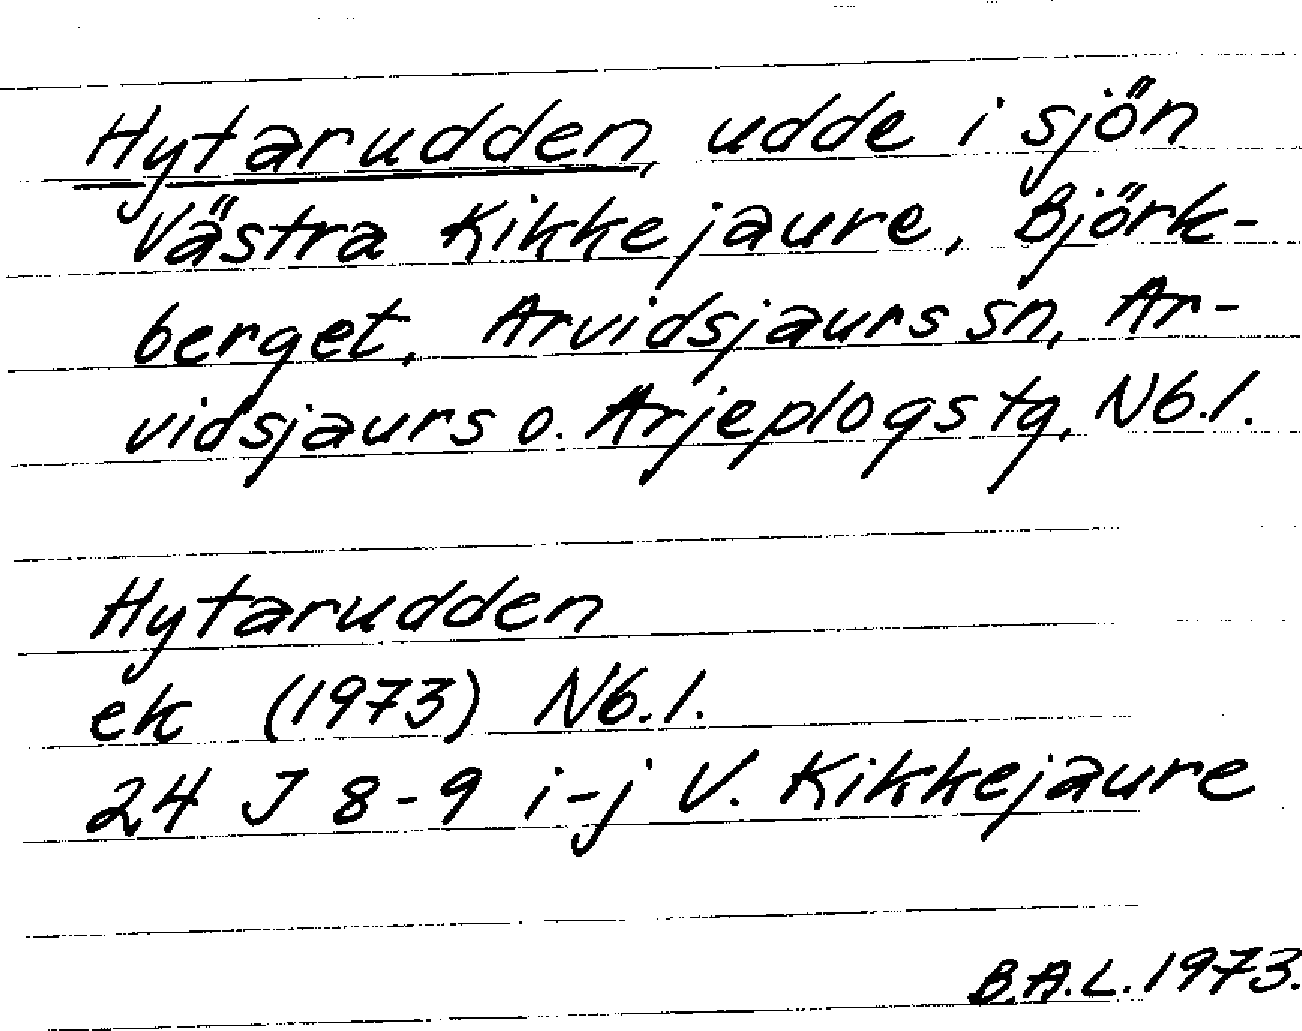 Hytarudden, udde i sjön
Västra Kikkejaure, Björk-
berget, Arvidsjaurs sn, Ar-
vidsjaurs o. Arjeplogs tg, Nb.l.
Hytarudden
ek (1973) Nb.l.
24 J 8-9 i-j V. Kikkejaure
B.A.L. 1973.